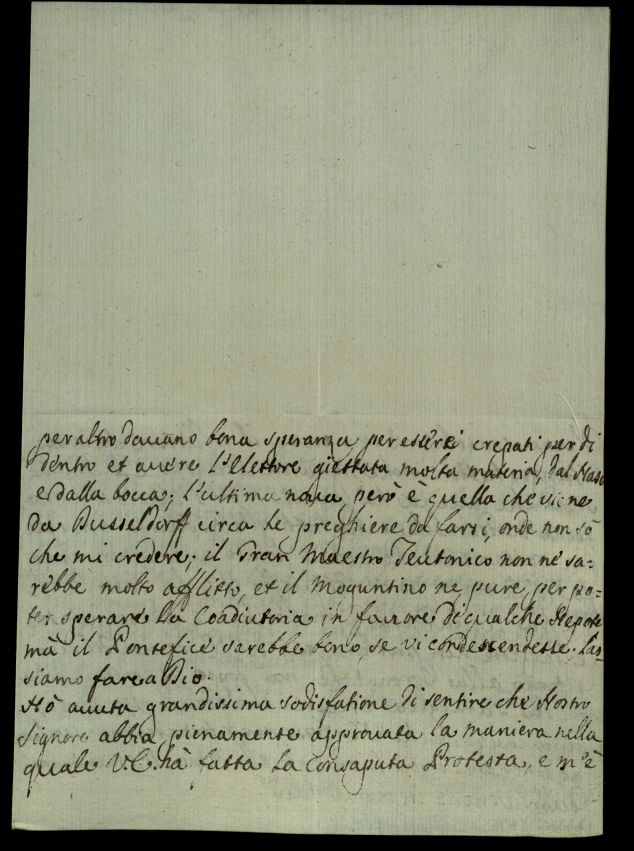 per altro davano bona speranza per essersi crepati per di
dentro et avere l'Elettore giettata molta materia, dal Naso
e dalla bocca; l'ultima nova però è quella che viene
da Dusseldorff circa le preghiere da farsi, onde non sò
che mi credere; il Gran Maestro Teutonico non ne sa=
rebbe molto afflitto, et il Moguntino ne pure, per po=
ter sperare la Coadiutoria in favore di qualche Nepote
mà il Pontefice sarebbe bono, se vi condescendesse; las=
siamo fare a Dio.
Hò avuta grandissima sodisfatione di sentire che Nostro
Signore abbia pienamente approvata la maniera nella
quale V.E. hà fatta la consaputa Protesta, e m'è